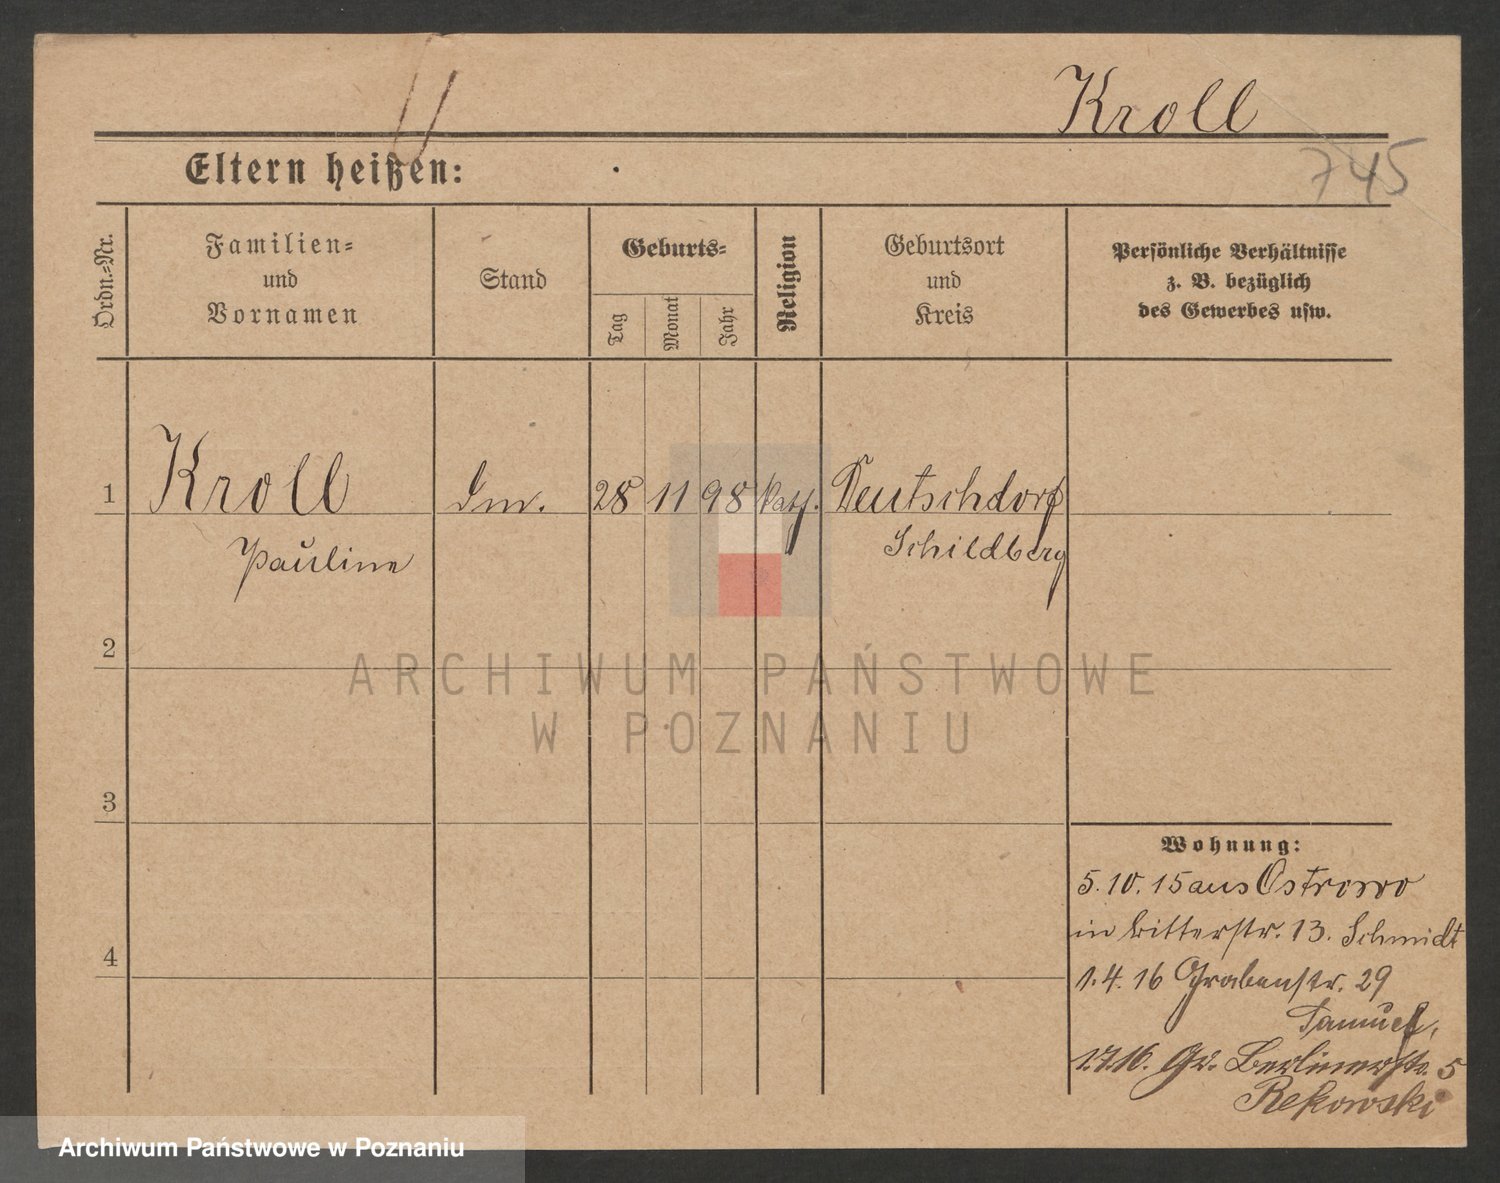 Kroll
745
Eltern heißen:
Ordn.-Nr.
Familien-
und
Vornamen
Stand
Geburts-
Tag
Monat
Jahr
Religion
Geburtsort
und
Kreis
Persönliche Verhältnisse
z. B. bezüglich
des Gewerbes usw.
1 Kroll 28 11 98 kath. Deutschdorf
Pauline Schildberg
2
ARCHIWUM PAŃSTWOWE
W POZNANIU
3
Wohnung:
5.10.15 aus Ostrowo
in Ritterstr. 13. Schmidt
4
1.4.16 Grabenstr. 29
Samuel,
1.7.16. Gr. Berlinerstr. 5
Rekowski
Archiwum Państwowe w Poznaniu